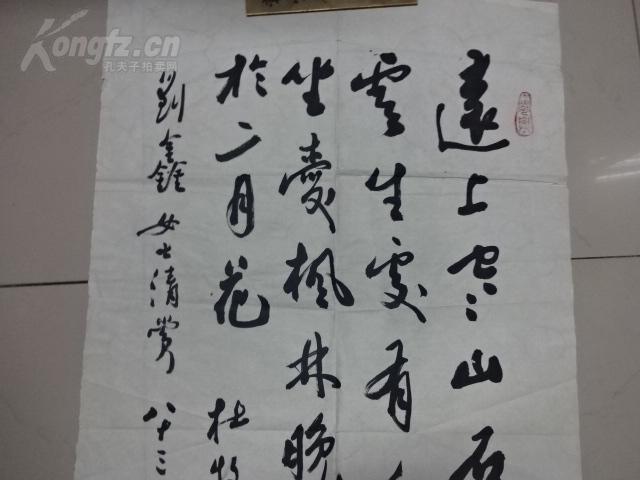 遠上寒山石
雲生處有
坐愛楓林晚
於二月花
杜牧
劉鑫女士清賞 八十三
Kongfz.cn
孔夫子拍卖网